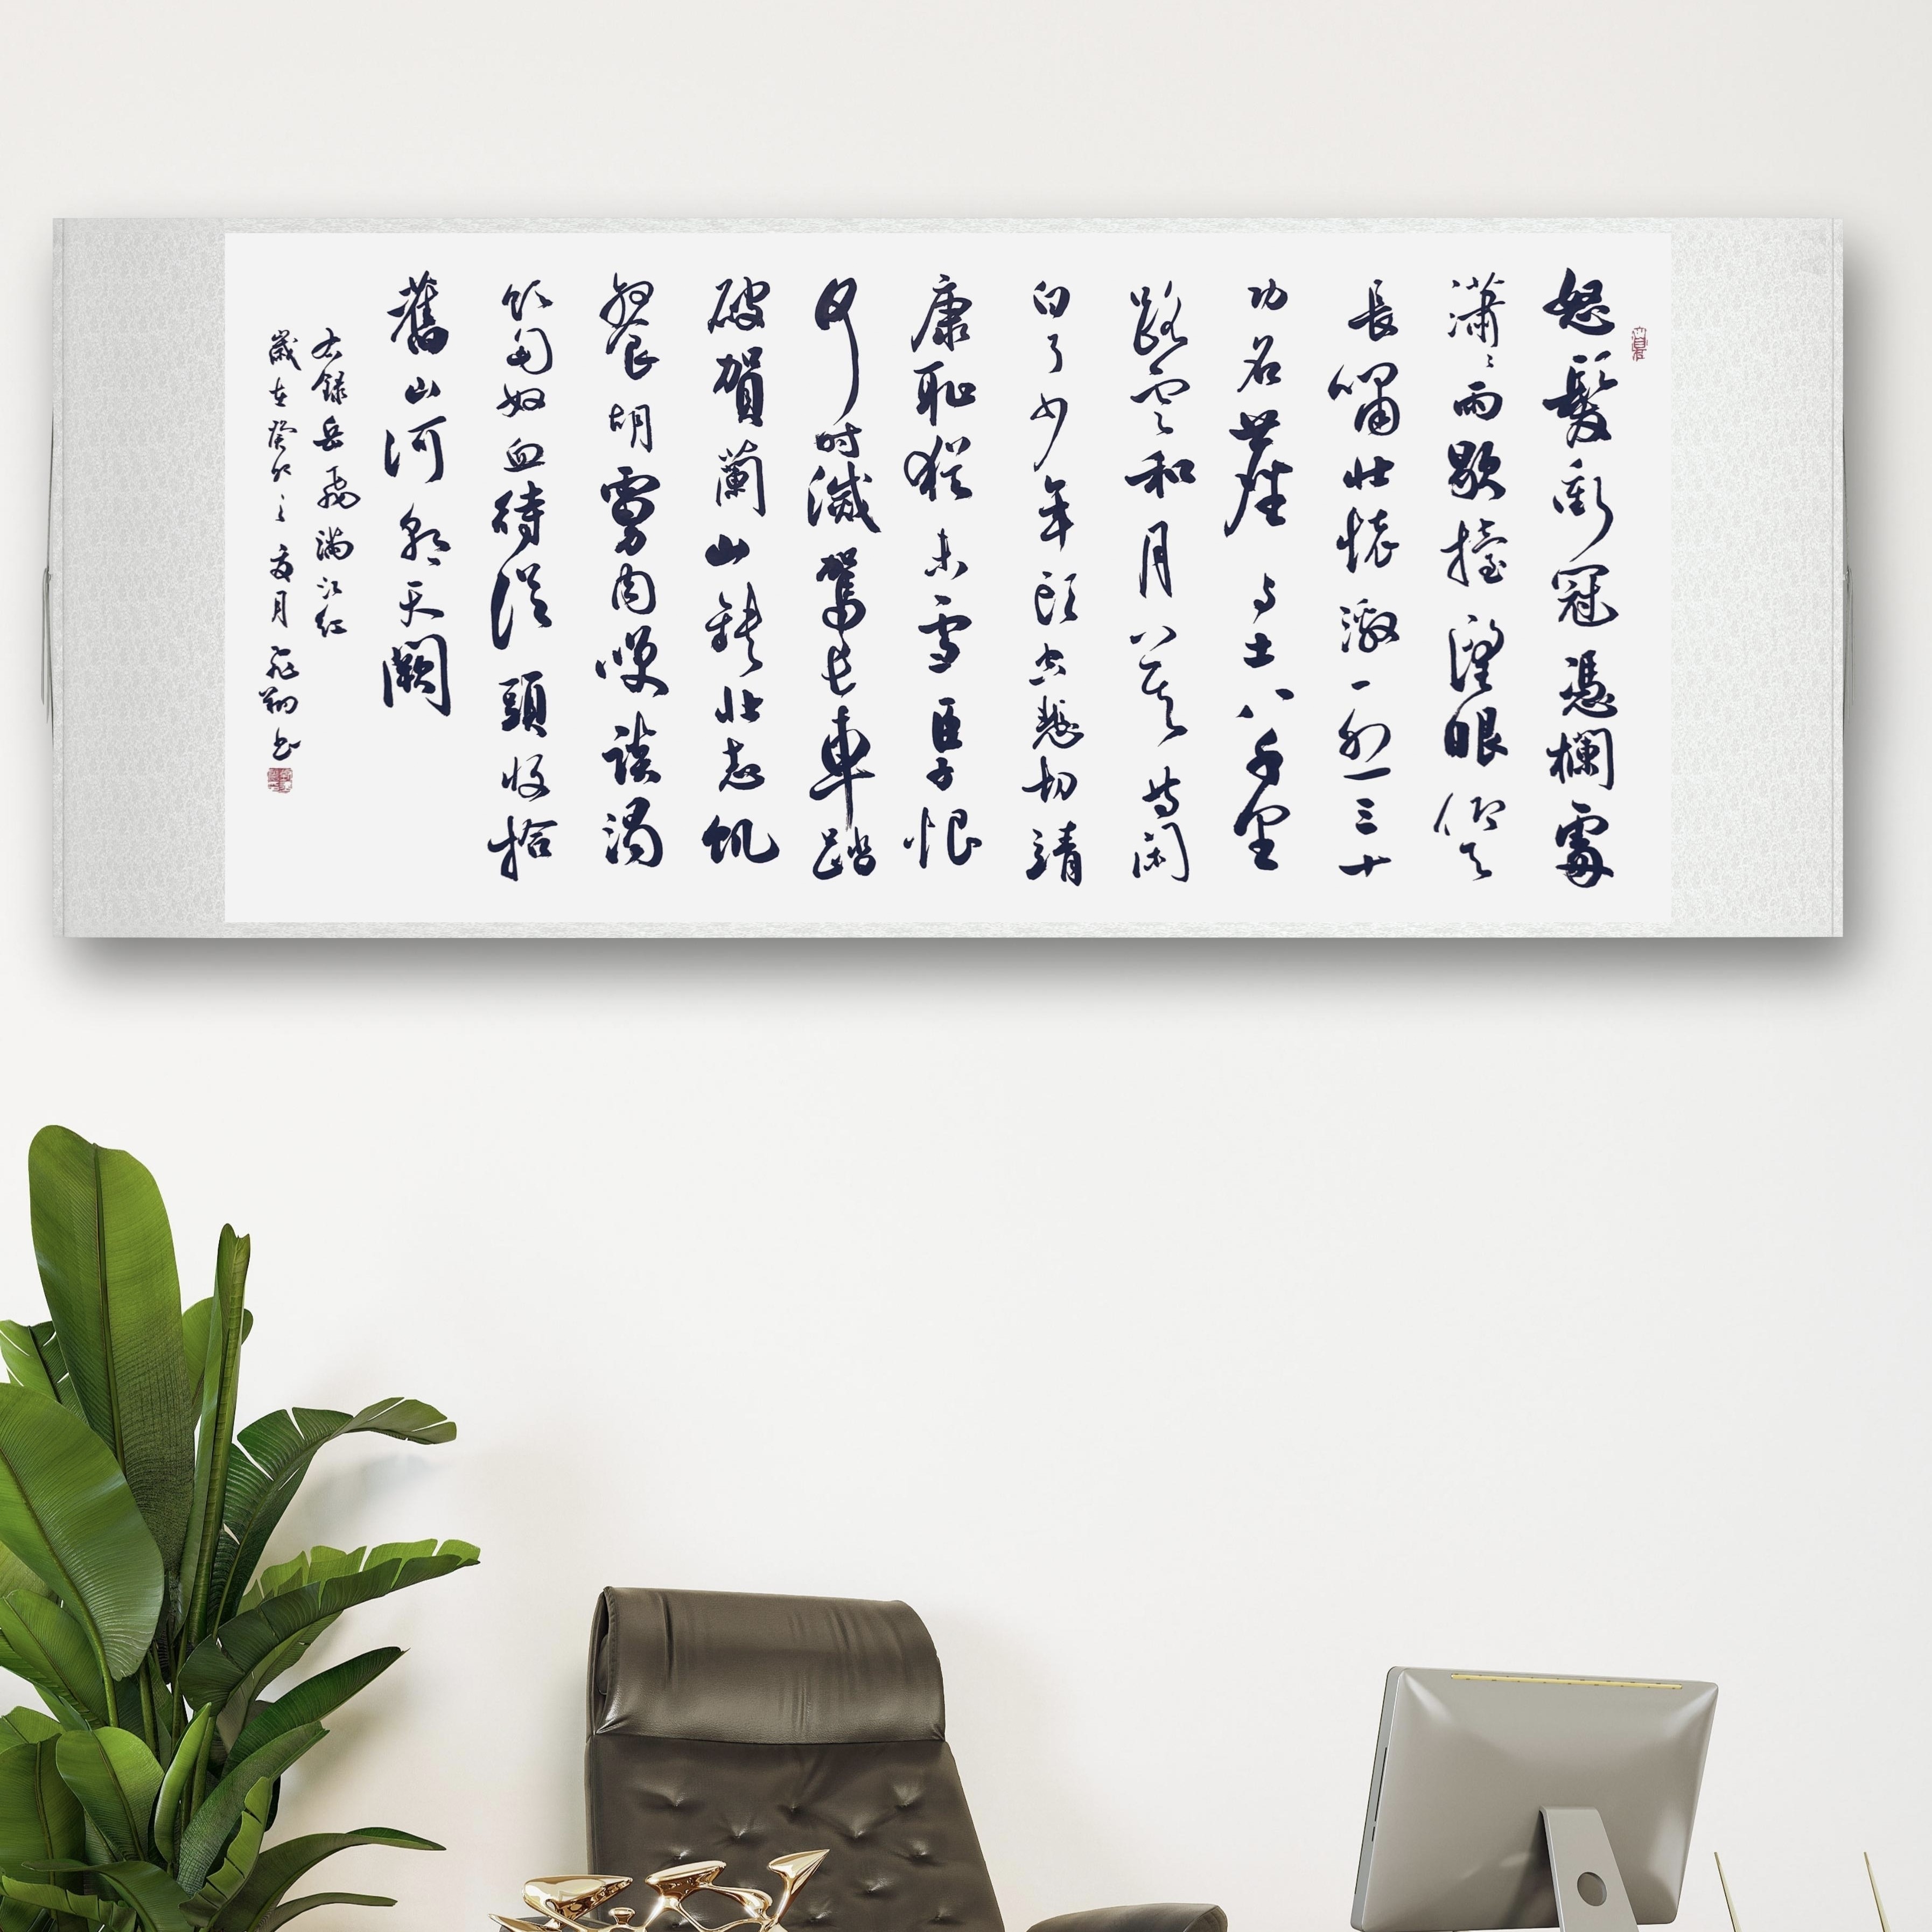 怒髮衝冠憑欄處
瀟〻雨歇擡望眼仰天
長嘯壯懷激烈三十
功名塵与土八千里
路雲和月莫等閑
白了少年頭空悲切靖
康恥猶未雪臣子恨
何時滅駕長車踏
破賀蘭山缺壯志飢
餐胡虜肉咲談渴
飲匈奴血待從頭收拾
舊山河朝天闕
右錄岳飛滿江紅
歲在癸卯之夏月飛翔书